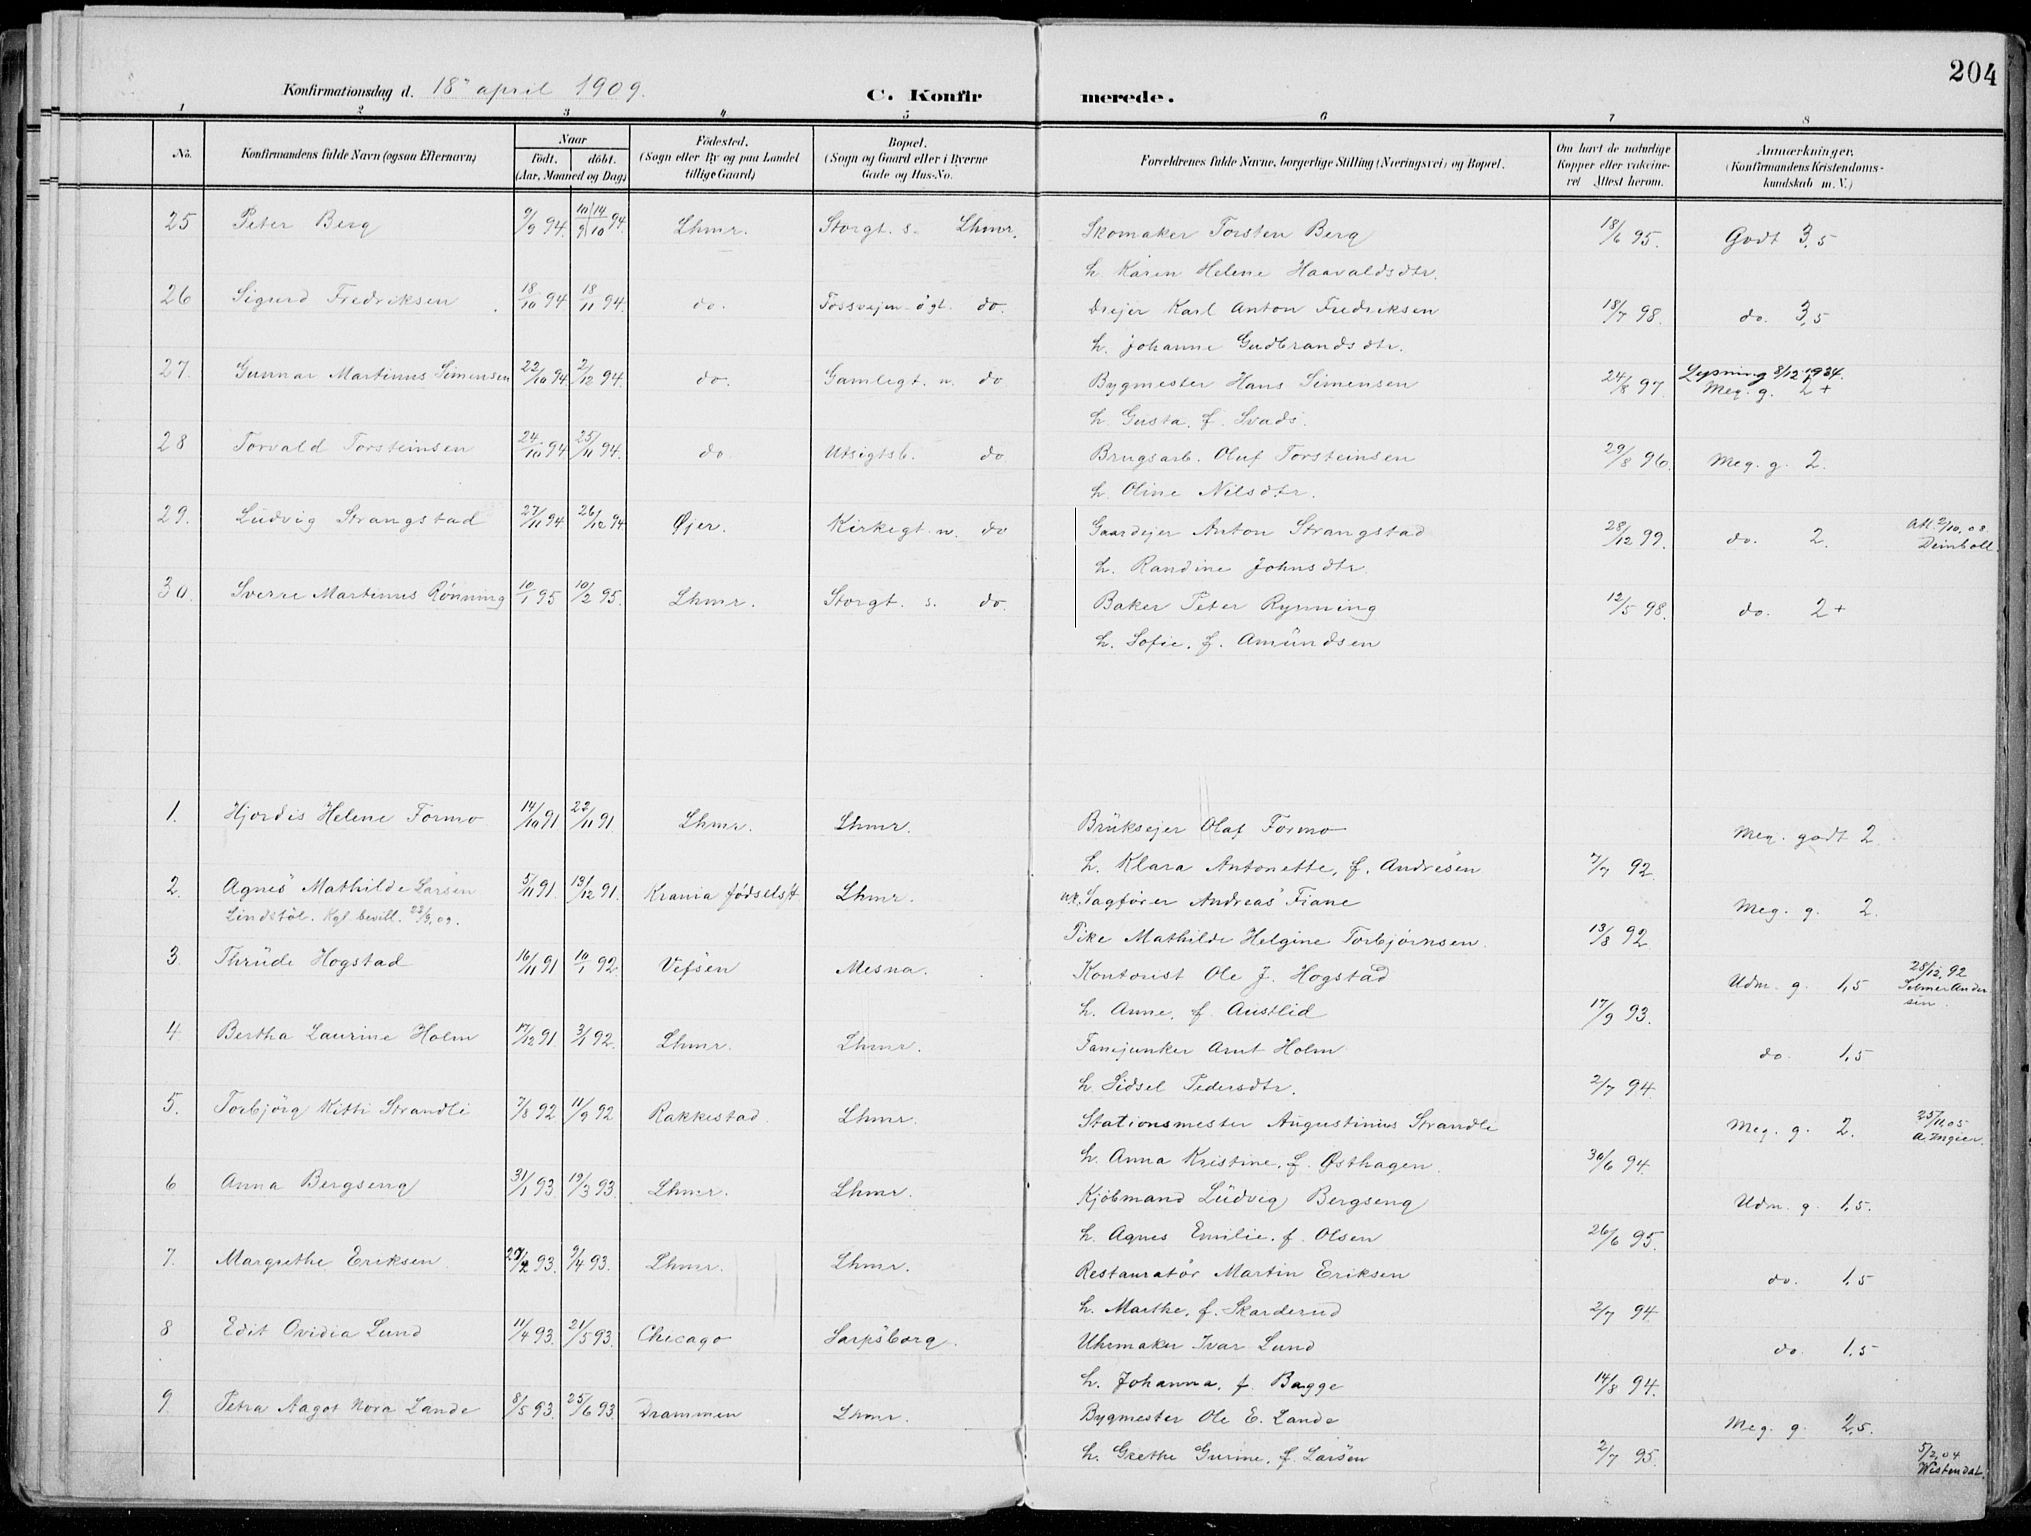 204
Konfirmationsdag d. 18de april 1909.
C. Konfirmerede.
1 2 3 4 5 6 7 8
No. Konfirmandens fulde Navn (ogsaa Efternavn) Naar Født. døbt. (Aar, Maaned og Dag) Fødested. (Sogn eller By og paa Landet tillige Gaard) Bopæl. (Sogn og Gaard eller i Byerne Gade og Hus-No. Forældrenes fulde Navne, borgerlige Stilling (Næringsvei) og Bopæl. Om havt de naturlige Kopper eller vakcineret Attest herom. Anmærkninger. (Konfirmandens Kristendomskundskab m. V.)
25 Peter Berg 9/9 94. 14/10 94. Lhmr. Storgt. s. Lhmr. Skomaker Torsten Berg 18/6 95. Godt 3,5
h. Karen Helene Haavaldsdtr.
26 Sigurd Fredriksen 18/10 94 18/11 94. do. Fossvejen ø gt. do. Drejer Karl Anton Fredriksen 18/7 98. do. 3,5
h. Johanne Gudbrandsdtr.
27. Gunnar Martinus Simensen 22/10 94 2/12 94. do. Gamlegt. n. do Bygmester Hans Simensen 24/8 97 Lysning 8/12 1934. Meg. g. 2+
h. Gusta. f. Svads.
28 Torvald Torsteinsen 24/10 94 25/11 94. do Utsigtsb. do Brugsarb. Oluf Torsteinsen 29/8 96. Meg. g. 2.
h. Oline Nilsdtr.
29. Ludvig Strangstad 27/11 94 26/12 94 Øjer. Kirkegt. n. do Gaardejer Anton Strangstad 28/12 99. do. 2. Att. 2/10.08. Deinboll.
h. Randine Johnsdtr.
30. Sverre Martinus Rønning 10/1 95 10/2 95. Lhmr. Storgt. s. do. Baker Peter Rynning 12/5 98. do. 2+
h. Sofie. f. Amundsen
1. Hjørdis Helene Formo 14/10 91 22/11 91. Lhmr. Lhmr. Bruksejer Olaf Formo Meg. godt 2.
h. Klara Antonette, f. Andresen 7/7 92.
2. Agnes Mathilde Larsen 5/11 91 13/12 91. Krania fødselsst. Lhmr. Sagfører Andreas Fiane Meg. g. 2.
Lindstøl. Kgl. bevill. 23/3.09. Pike Mathilde Helgine Torbjørnsen. 13/8 92.
3. Thrude Hogstad 16/11 91 10/1 92. Vefsen Mesna. Kontorist Ole J. Hogstad Udm. g. 1,5 28/12.92 Selmer Andersen.
h. Anne. f. Austlid 17/9 93.
4 Bertha Laurine Holm 17/12 91 3/1 92. Lhmr. Lhmr. Fanejunker Arnt Holm do. 1,5
h. Sidsel Pedersdtr. 2/7 94.
5. Torbjørg Kitti Strandli 7/8 92 11/9 92 Rakkestad. Lhmr. Stationsmester Augustinus Strandli Meg. g. 2. 25/11.05 A. Ingier.
h. Anna Kristine. f. Østhagen. 30/6 94.
6 Anna Bergseng 31/1 93. 19/3 93. Lhmr. Lhmr. Kjøbmand Ludvig Bergseng Udm. g. 1,5.
h. Agnes Emilie. f. Olsen 26/6 95.
7. Margrethe Eriksen 27/2 93. 9/4 93. Lhmr. Lhmr. Restauratør Martin Eriksen do. 1,5
h. Marthe. f. Skarderud 2/7 94.
8 Edit Ovidia Lund 11/4 93. 21/5 93. Chicago Sarpsborg. Uhrmaker Ivar Lund do. 1,5
h. Johanna. f. Bagge 14/8 94.
9 Petra Aagot Nora Lande 8/5 93. 25/6 93. Drammen Lhmr. Bygmester Ole E. Lande Meg. g. 2,5.
h. Grethe Gurine, f. Larsen 2/7 95. 5/2.04 Wistendal.